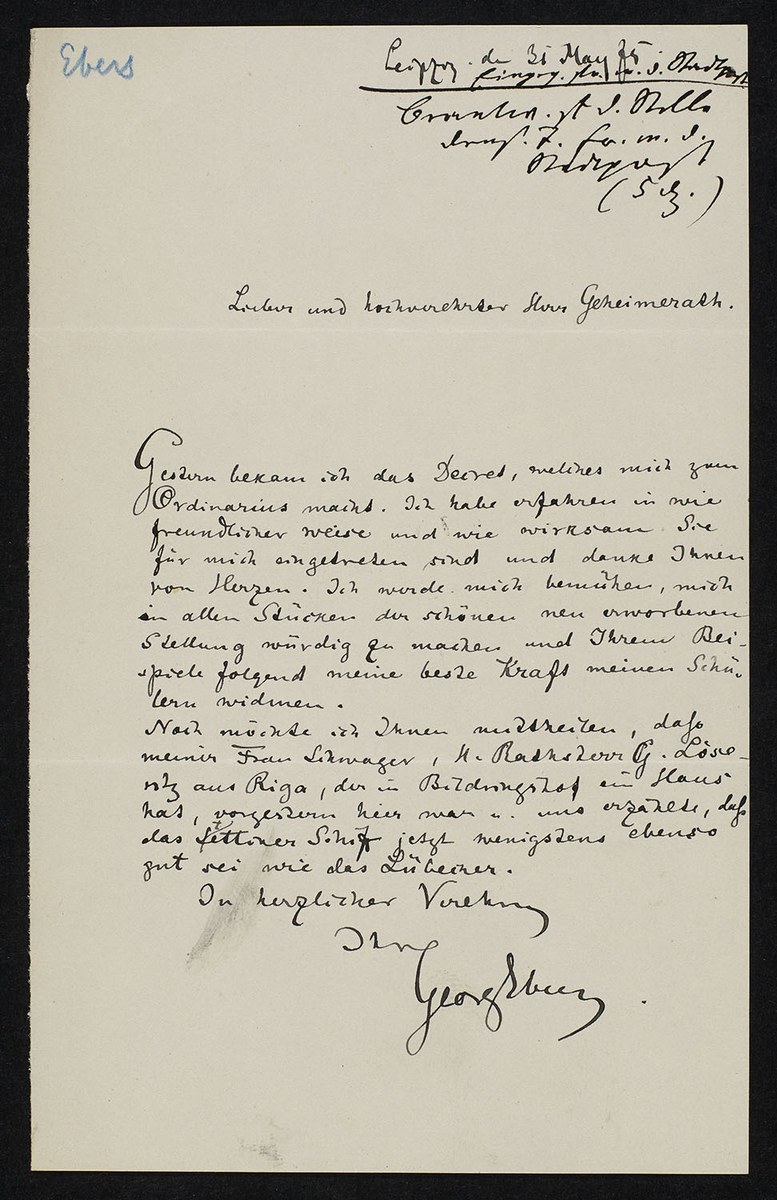 Ebers
Leipzig. de 31 May 75
Eingeg. u. d. Stadtpost
Beantw. d. Stelle
m. d.
Stadtpost
(5 )
Lieber und hochverehrter Herr Geheimerath.
Gestern bekam ich das Decret, welches mich zum
Ordinarius macht. Ich habe erfahren in wie
freundlicher weise und wie wirksam Sie
für mich eingetreten sind und danke Ihnen
von Herzen. Ich werde mich bemühen, mich
in allen Stücken der schönen neu erworbenen
Stellung würdig zu machen und Ihrem Bei-
spiele folgend meine beste Kraft meinen Schü-
lern widmen.
Noch möchte ich Ihnen mittheilen, daß
meiner Frau Schwager, H. Rathsherr G. Löse-
witz aus Riga, der in Bildringshof ein Haus
hat, vorgestern hier war u. uns erzählte, daß
das Stettiner Schiff jetzt wenigstens ebenso
gut sei wie das Lübecker.
In herzlicher Verehrung
Ihr
Georg Ebers.